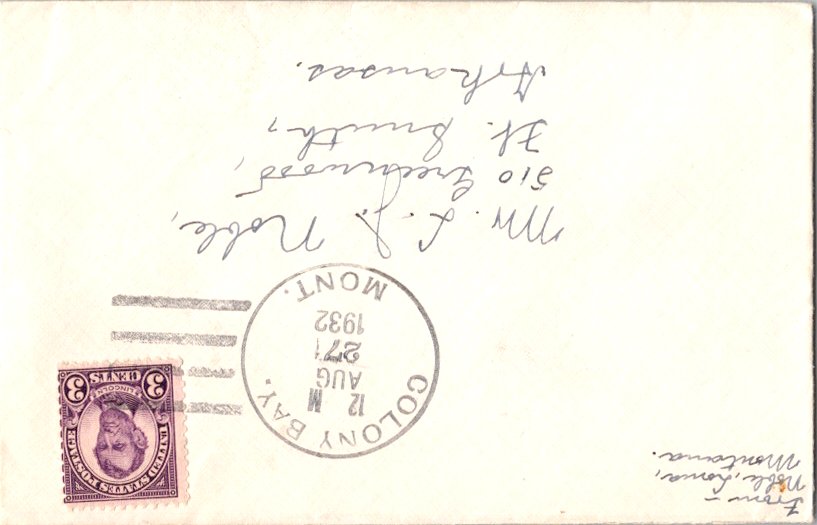 From –
Noble, Loma,
Montana.
COLONY BAY.
12 M
AUG
27
1932
MONT.
UNITED STATES POSTAGE
LINCOLN
3 CENTS 3
Mr. L. J. Noble,
510 Greenwood,
Ft. Smith,
Arkansas.